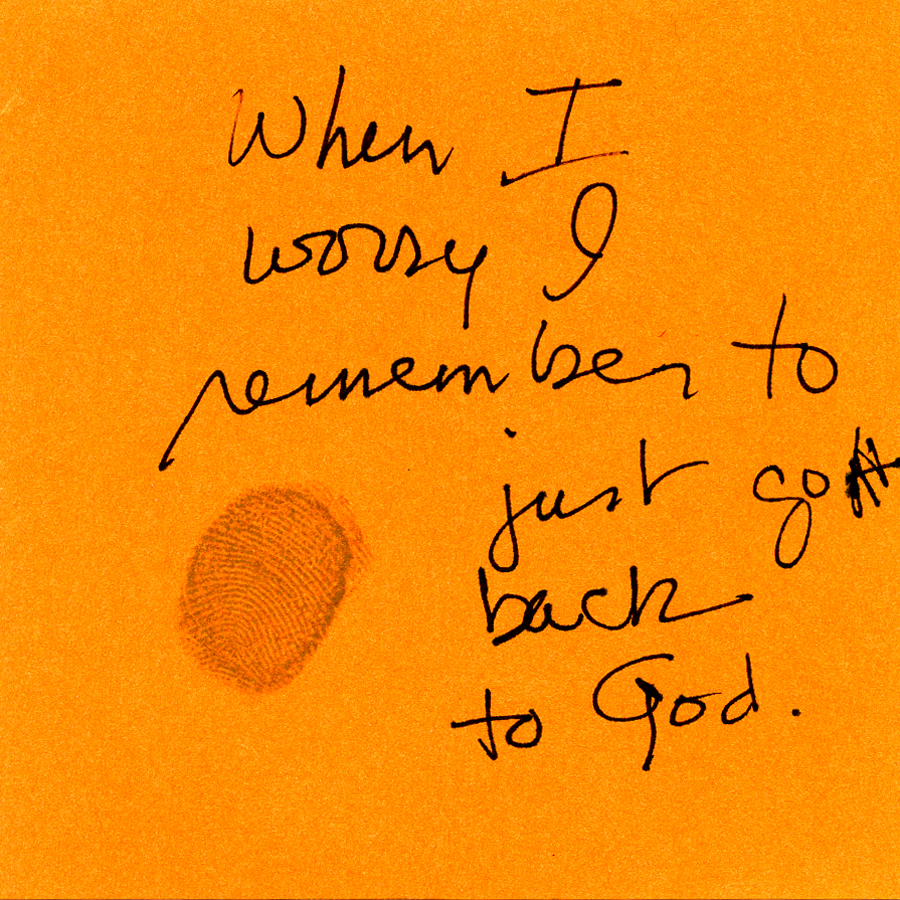 When I
worry I
remember to
just go
back
to God.